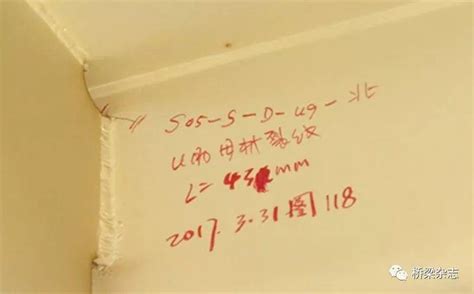 S05-S-D-U9-北
U肋母材裂纹
L= 43 mm
2017. 3.31图118
桥梁杂志